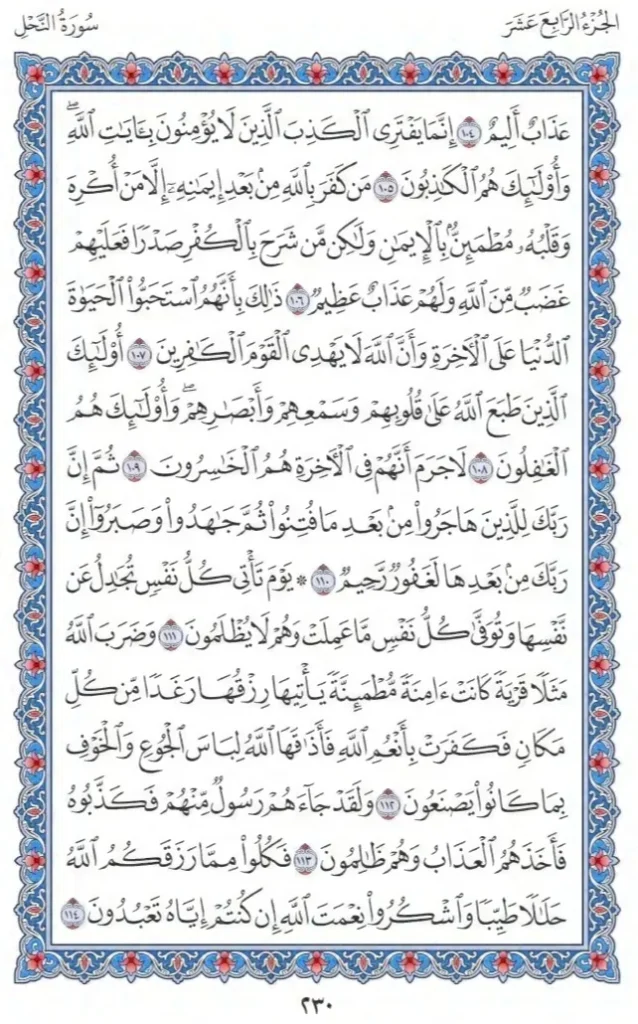 الجُزْءُ الرَّابِعَ عَشَرَ
سُورَةُ النَّحْلِ
عَذَابٌ أَلِيمٌ ١٠٤ إِنَّمَا يَفْتَرِى ٱلْكَذِبَ ٱلَّذِينَ لَا يُؤْمِنُونَ بِـَٔايَٰتِ ٱللَّهِۖ
وَأُوْلَٰٓئِكَ هُمُ ٱلْكَٰذِبُونَ ١٠٥ مَن كَفَرَ بِٱللَّهِ مِنۢ بَعْدِ إِيمَٰنِهِۦٓ إِلَّا مَنْ أُكْرِهَ
وَقَلْبُهُۥ مُطْمَئِنٌّۢ بِٱلْإِيمَٰنِ وَلَٰكِن مَّن شَرَحَ بِٱلْكُفْرِ صَدْرًا فَعَلَيْهِمْ
غَضَبٌ مِّنَ ٱللَّهِ وَلَهُمْ عَذَابٌ عَظِيمٌ ١٠٦ ذَٰلِكَ بِأَنَّهُمُ ٱسْتَحَبُّواْ ٱلْحَيَوٰةَ
ٱلدُّنْيَا عَلَى ٱلْأٓخِرَةِ وَأَنَّ ٱللَّهَ لَا يَهْدِى ٱلْقَوْمَ ٱلْكَٰفِرِينَ ١٠٧ أُوْلَٰٓئِكَ
ٱلَّذِينَ طَبَعَ ٱللَّهُ عَلَىٰ قُلُوبِهِمْ وَسَمْعِهِمْ وَأَبْصَٰرِهِمْۖ وَأُوْلَٰٓئِكَ هُمُ
ٱلْغَٰفِلُونَ ١٠٨ لَا جَرَمَ أَنَّهُمْ فِى ٱلْأٓخِرَةِ هُمُ ٱلْخَٰسِرُونَ ١٠٩ ثُمَّ إِنَّ
رَبَّكَ لِلَّذِينَ هَاجَرُواْ مِنۢ بَعْدِ مَا فُتِنُواْ ثُمَّ جَٰهَدُواْ وَصَبَرُوٓاْ إِنَّ
رَبَّكَ مِنۢ بَعْدِهَا لَغَفُورٌ رَّحِيمٌ ١١٠ * يَوْمَ تَأْتِى كُلُّ نَفْسٍ تُجَٰدِلُ عَن
نَّفْسِهَا وَتُوَفَّىٰ كُلُّ نَفْسٍ مَّا عَمِلَتْ وَهُمْ لَا يُظْلَمُونَ ١١١ وَضَرَبَ ٱللَّهُ
مَثَلًا قَرْيَةً كَانَتْ ءَامِنَةً مُّطْمَئِنَّةً يَأْتِيهَا رِزْقُهَا رَغَدًا مِّن كُلِّ
مَكَانٍ فَكَفَرَتْ بِأَنْعُمِ ٱللَّهِ فَأَذَٰقَهَا ٱللَّهُ لِبَاسَ ٱلْجُوعِ وَٱلْخَوْفِ
بِمَا كَانُواْ يَصْنَعُونَ ١١٢ وَلَقَدْ جَآءَهُمْ رَسُولٌ مِّنْهُمْ فَكَذَّبُوهُ
فَأَخَذَهُمُ ٱلْعَذَابُ وَهُمْ ظَٰلِمُونَ ١١٣ فَكُلُواْ مِمَّا رَزَقَكُمُ ٱللَّهُ
حَلَٰلًا طَيِّبًا وَٱشْكُرُواْ نِعْمَتَ ٱللَّهِ إِن كُنتُمْ إِيَّاهُ تَعْبُدُونَ ١١٤
٢٣٠